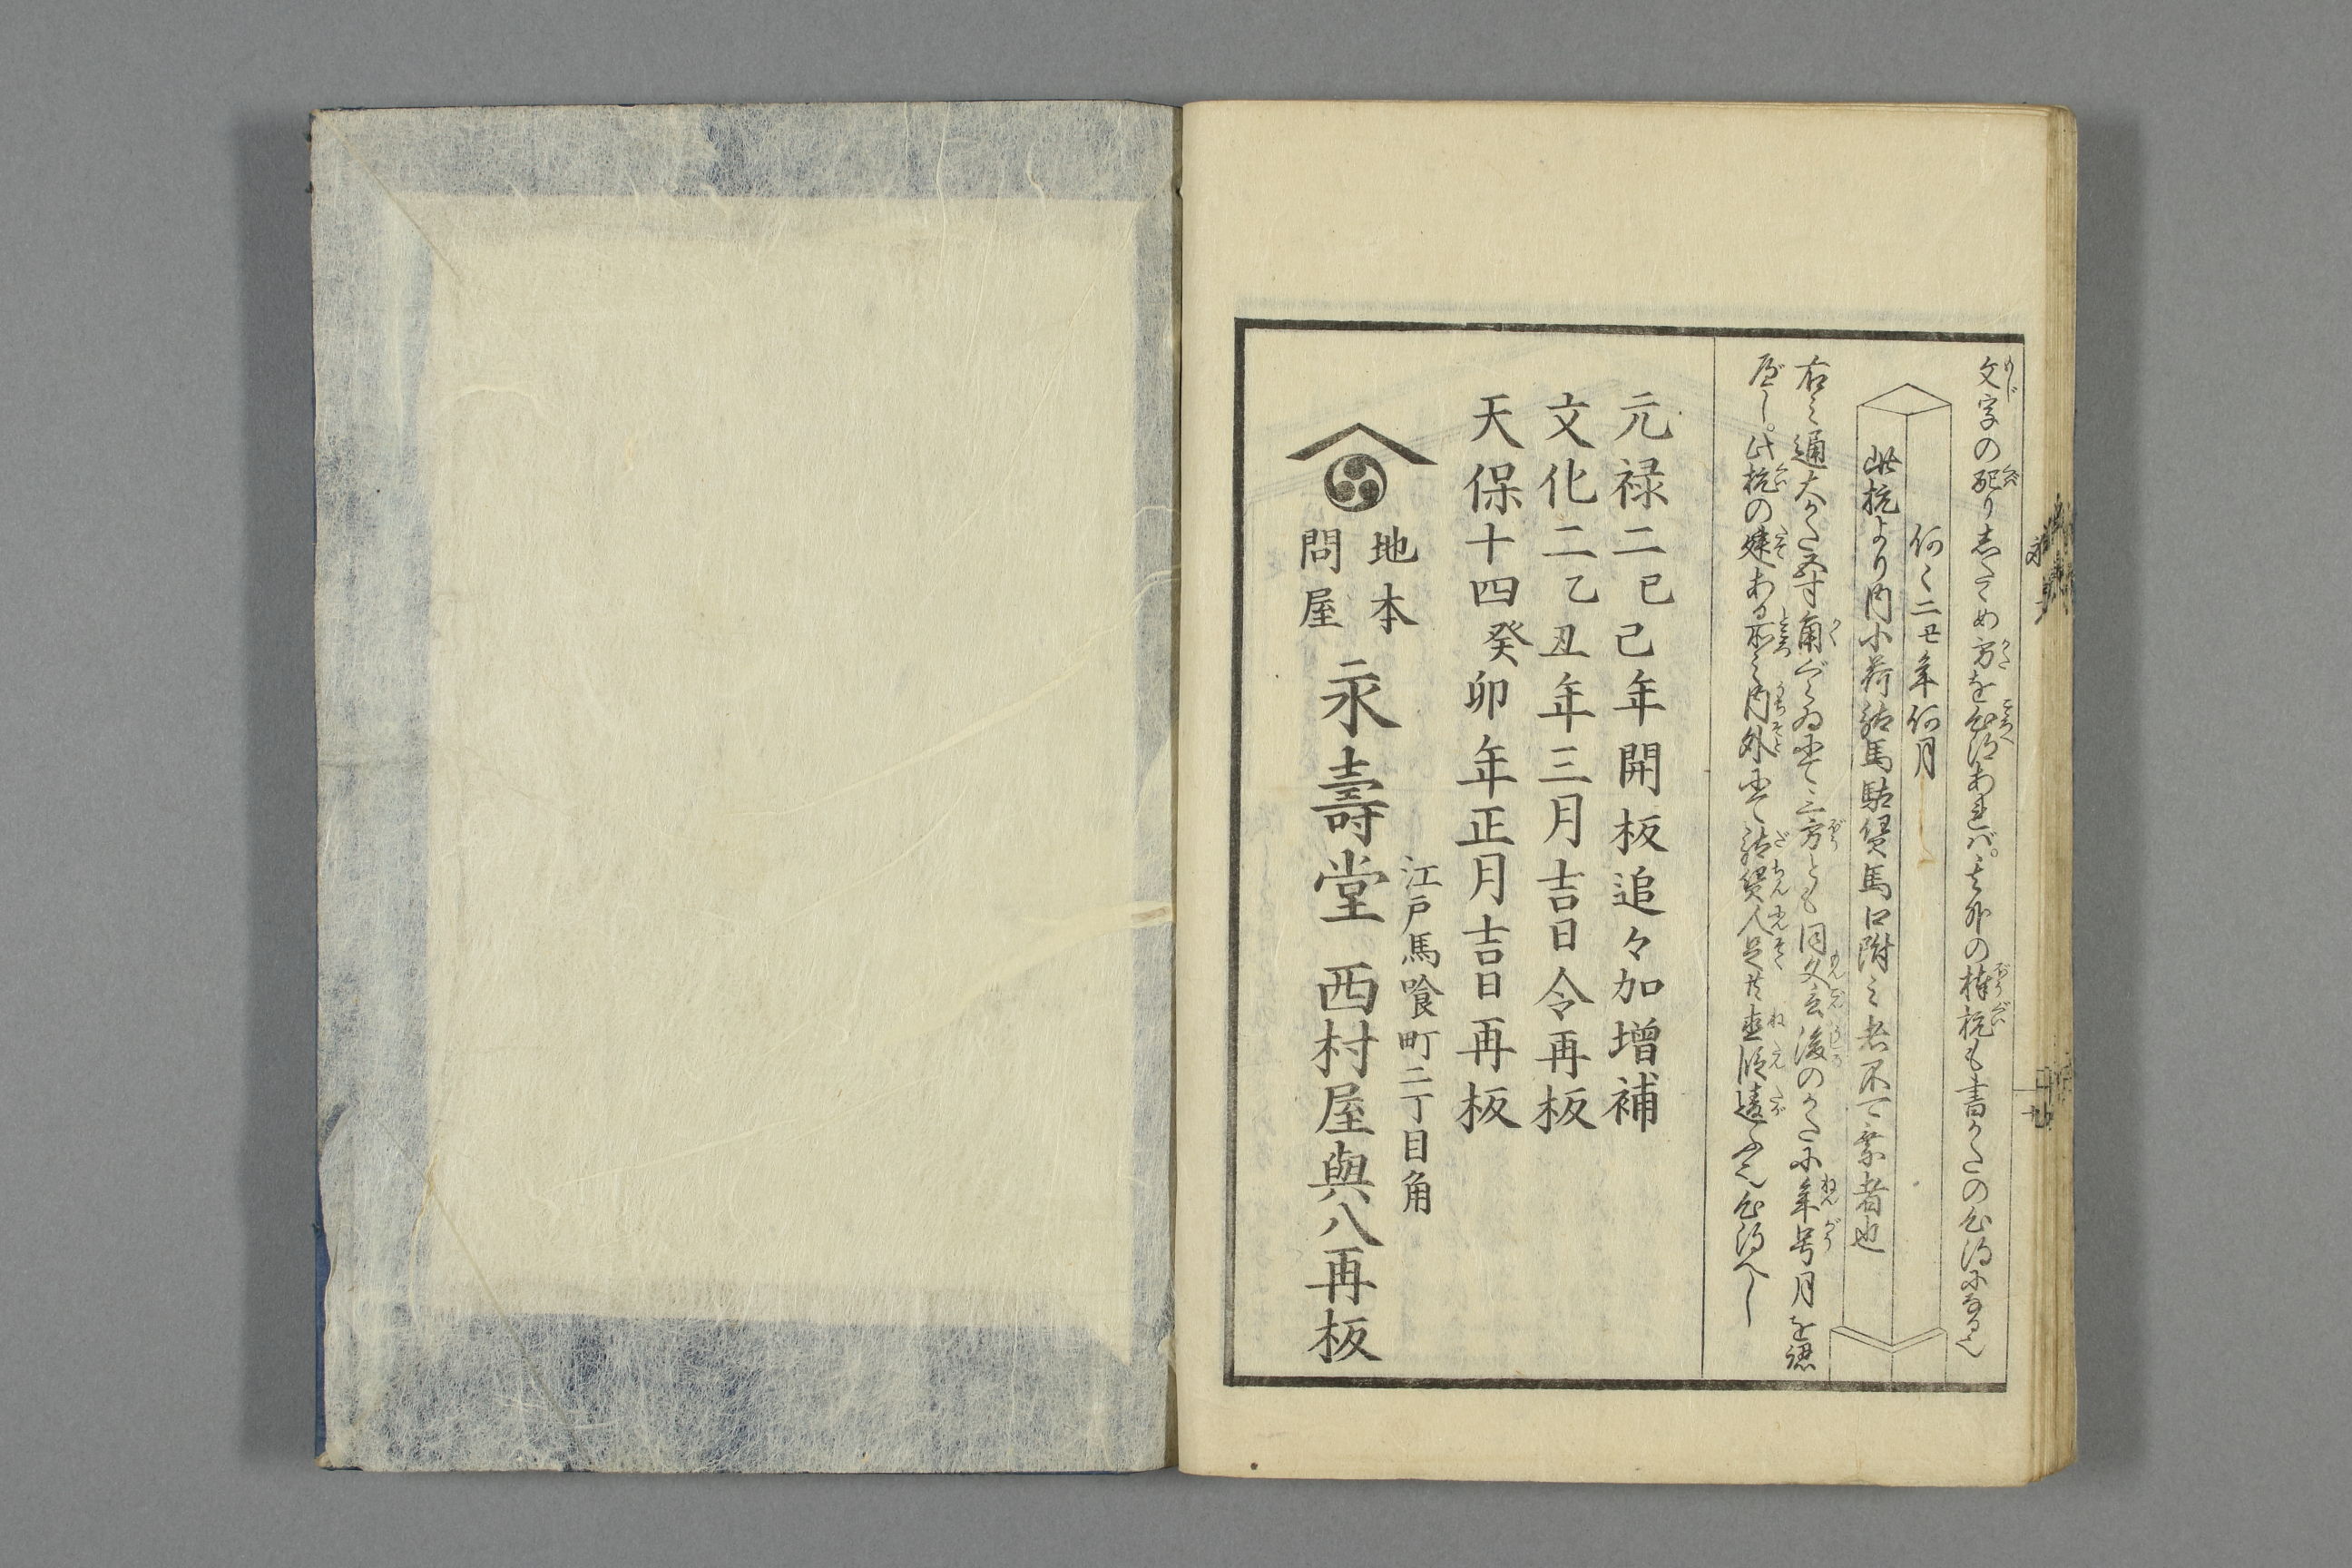 文字の配りしたゝめ方を心得あれバ。其外の棒杭も書かたの心得になるべし
何之二丑年何月
此杭より内小荷駄馬駄賃馬口附之者不可乗者也
右之通大かた五寸角ぐらゐにて三方とも同文言後のかたに年号月を認
べし。此杭の建ある所之内外にて駄賃人足共直段違ふ也心得べし
元禄二己巳年開板追々加増補
文化二乙丑年三月吉日令再板
天保十四癸卯年正月吉日再板
地本
問屋
江戸馬喰町二丁目角
永壽堂 西村屋與八再板